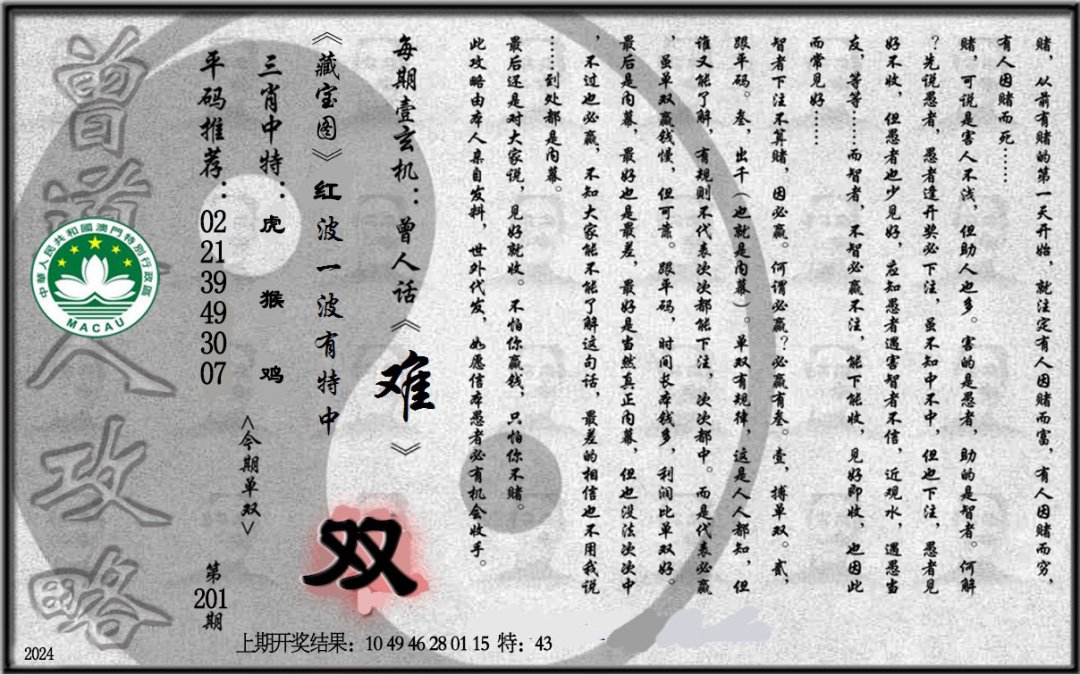 赌，从前有赌的第一天开始，就注定有人因赌而富，有人因赌而穷，
有人因赌而死……
赌，可说是害人不浅，但助人也多。害的是愚者，助的是智者。何解
？先说愚者，愚者逢开奖必下注，虽不知中不中，但也下注，愚者见
好不收，但愚者也少见好，应知愚者遇害智者不信，近观水，遇愚当
友，等等……而智者，不智必赢不注，能下能收，见好即收，也因此
而常见好……
智者下注不算赌，因必赢。何谓必赢？必赢有叁。壹，搏单双。贰，
跟平码。叁，出千（也就是内幕）。单双有规律，这是人人都知，但
谁又能了解，有规则不代表次次都能下注，次次都中。而是代表必赢
，虽单双赢钱慢，但可靠。跟平码，时间长本钱多，利润比单双好。
最后是内幕，最好也是最差，最好是当然真正内幕，但也没法次次中
，不过也必赢，不知大家能不能了解这句话，最差的相信也不用我说
……到处都是内幕。
最后还是对大家说，见好就收。不怕你赢钱，只怕你不赌。
此攻略由本人亲自发料，世外代发，如愿信本愚者必有机会收手。
每期壹玄机：曾人话《难》
《藏宝图》红波一波有特中
三肖中特：虎 猴 鸡
平码推荐：02 21 39 49 30 07
<今期单双>
双
第201期
曾道人攻略
中華人民共和國澳門特別行政區
MACAU
上期开奖结果：10 49 46 28 01 15 特：43
2024